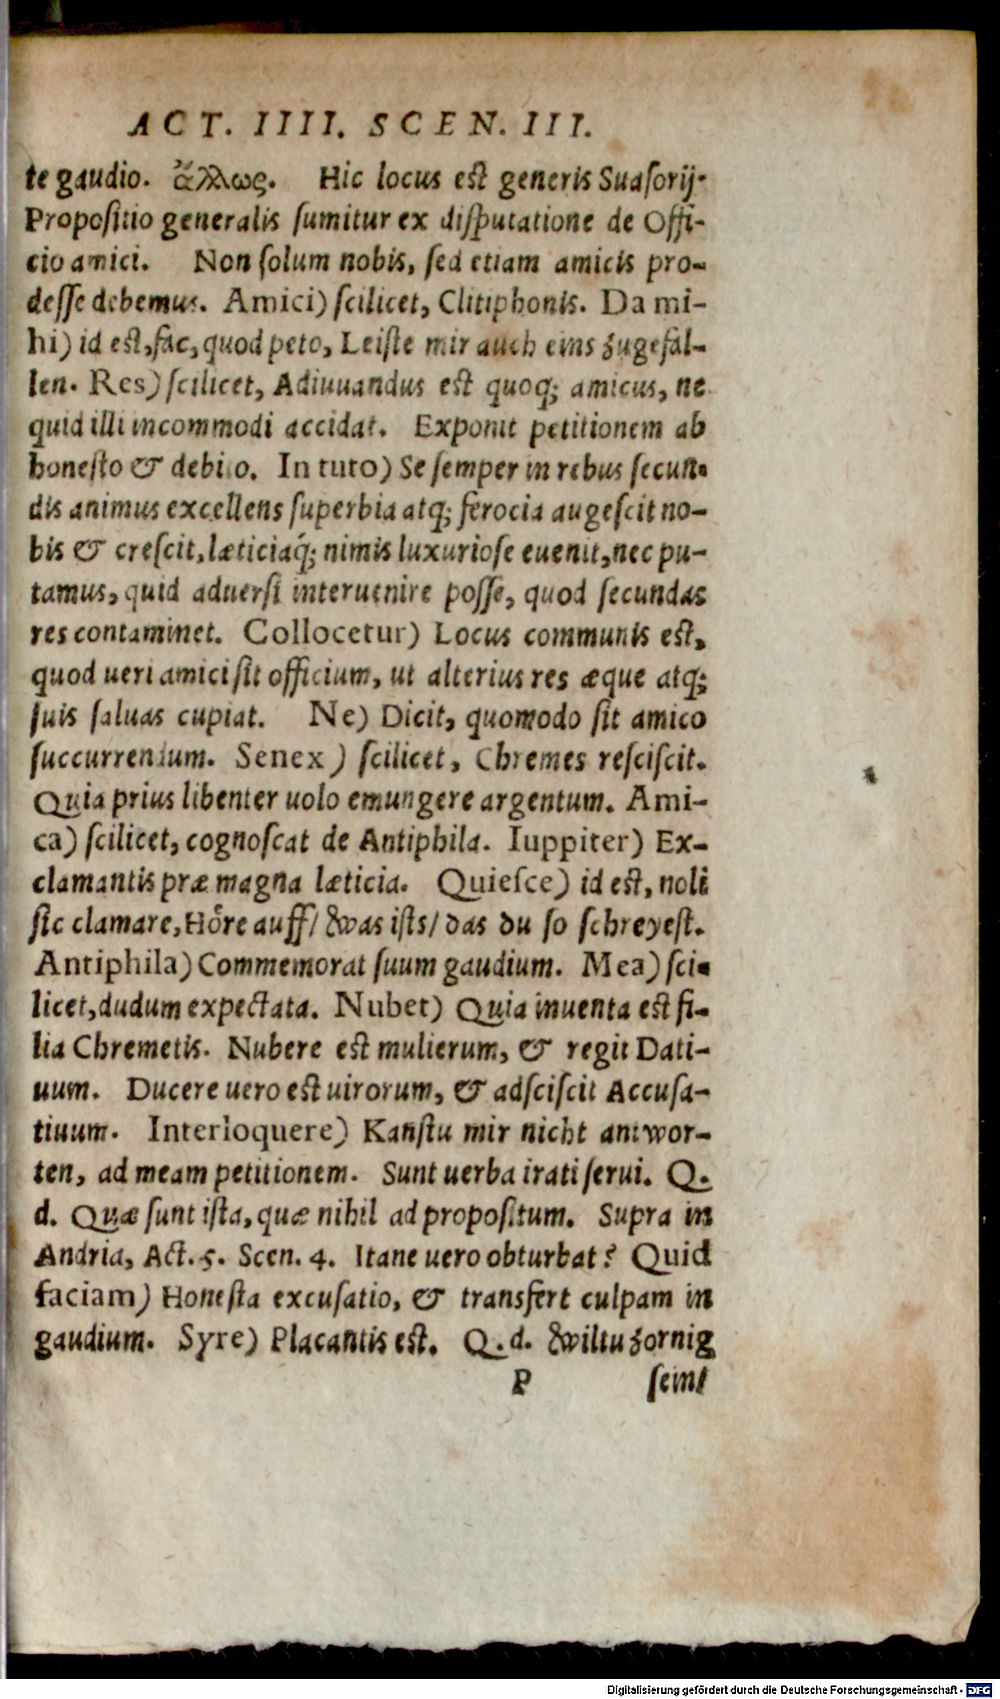 ACT. IIII. SCEN. III.
te gaudio. ἄλλως. Hic locus est generis Suasorij.
Propositio generalis sumitur ex disputatione de Offi-
cio amici. Non solum nobis, sed etiam amicis pro-
desse debemus. Amici) scilicet, Clitiphonis. Da mi-
hi) id est, fac, quod peto, Leiste mir auch eins zugefal-
len. Res) scilicet, Adiuuandus est quoq; amicus, ne
quid illi incommodi accidat. Exponit petitionem ab
honesto & debito. In tuto) Se semper in rebus secun-
dis animus excellens superbia atq; ferocia augescit no-
bis & crescit, læticiaq́; nimis luxuriose euenit, nec pu-
tamus, quid aduersi interuenire posse, quod secundas
res contaminet. Collocetur) Locus communis est,
quod ueri amici sit officium, ut alterius res æque atq;
suis saluas cupiat. Ne) Dicit, quomodo sit amico
succurrendum. Senex) scilicet, Chremes resciscit.
Quia prius libenter uolo emungere argentum. Ami-
ca) scilicet, cognoscat de Antiphila. Iuppiter) Ex-
clamantis præ magna læticia. Quiesce) id est, noli
sic clamare, Höre auff/ was ists/ das du so schreyest.
Antiphila) Commemorat suum gaudium. Mea) sci-
licet, dudum expectata. Nubet) Quia inuenta est fi-
lia Chremetis. Nubere est mulierum, & regit Dati-
uum. Ducere uero est uirorum, & adsciscit Accusa-
tiuum. Interloquere) Kanstu mir nicht antwor-
ten, ad meam petitionem. Sunt uerba irati serui. Q.
d. Quæ sunt ista, quæ nihil ad propositum. Supra in
Andria, Act. 5. Scen. 4. Itane uero obturbat? Quid
faciam) Honesta excusatio, & transfert culpam in
gaudium. Syre) Placantis est. Q. d. wiltu zornig
P sein/
Digitalisierung gefördert durch die Deutsche Forschungsgemeinschaft - DFG